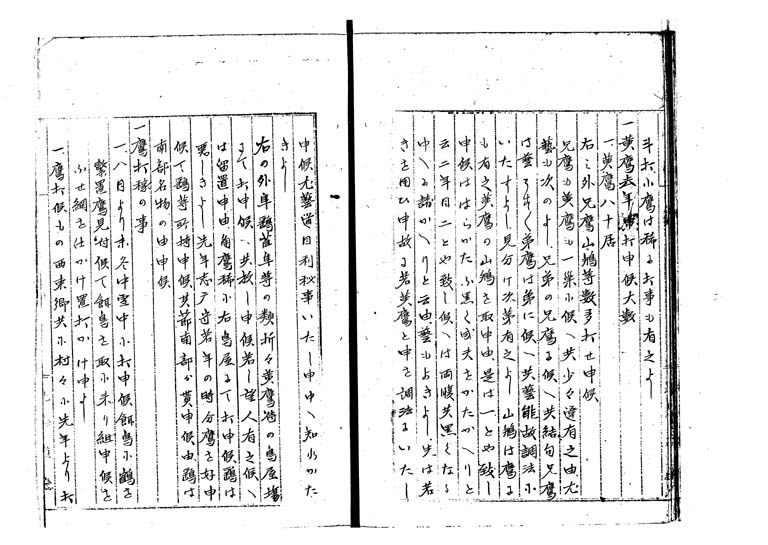 斗打小鷹は稀にお事も有之よし
一黄鷹去年中打申候大数
一、黄鷹八十居
右之外兄鷹山鵤等数多打せ申候
兄鷹も黄鷹も一巣小候へ共少々違有之由尤
藝も次のよし兄弟の兄鷹に候へ共結句兄鷹
は藝よわく弟鷹は弟に候へ共藝能故調法小
いたすよし見分け次第有之よし山鵤は鷹に
も有之黄鷹の山鵤を取申由是は一とや致し
申候ははらかたふ黒く或夫をかたかへりと
云二年目二とや致し候へは両腹共黒くなる
申へる諸かへりと云由藝もよきよし先は若
きを用ひ申故に若黄鷹と申を調法にいたし
申候尤藝道目利秘事いたし申申へ知れかた
きよし
右の外隼鷂雀隼等の類折々黄鷹待の鳥屋場
にて打申候へ共放し申候若し望人有之候へ
は留置申由角鷹稀小右鳥屋にて打申候鷂は
悪しきよし先年志戸守若年の時分鷹を好申
候て鷂等所持申候其節南部より貰申候由鷂は
南部名物の由申候
一鷹打様の事
一、八月より末冬中雪中小打申候餌鳥小鶴を
繋置鷹見付候て餌鳥を取小来り組申候を
ふせ網を仕かけ置打かけ申よし
一、鷹打候もの西東郷共小村々小先年より打